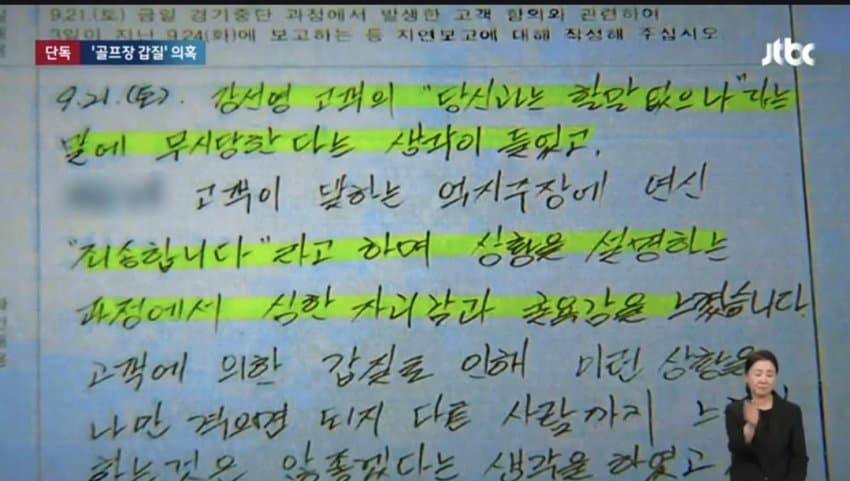 9.21.(토) 금일 경기중단 과정에서 발생한 고객 항의와 관련하여
3일이 지난 9.24(화)에 보고하는 등 지연보고에 대해 작성해 주십시오
단독 '골프장 갑질' 의혹
jtbc
9.21.(토). 강선영 고객의 "당신과는 할말 없으나"라는
말에 무시당한다는 생각이 들었고,
고객이 말하는 억지주장에 연신
"죄송합니다"라고 하며 상황을 설명하는
과정에서 심한 자괴감과 굴욕감을 느꼈습니다.
고객에 의한 갑질로 인해 이런 상황을
나만 겪으면 되지 다른 사람까지
하는것은 안좋겠다는 생각을 하였고